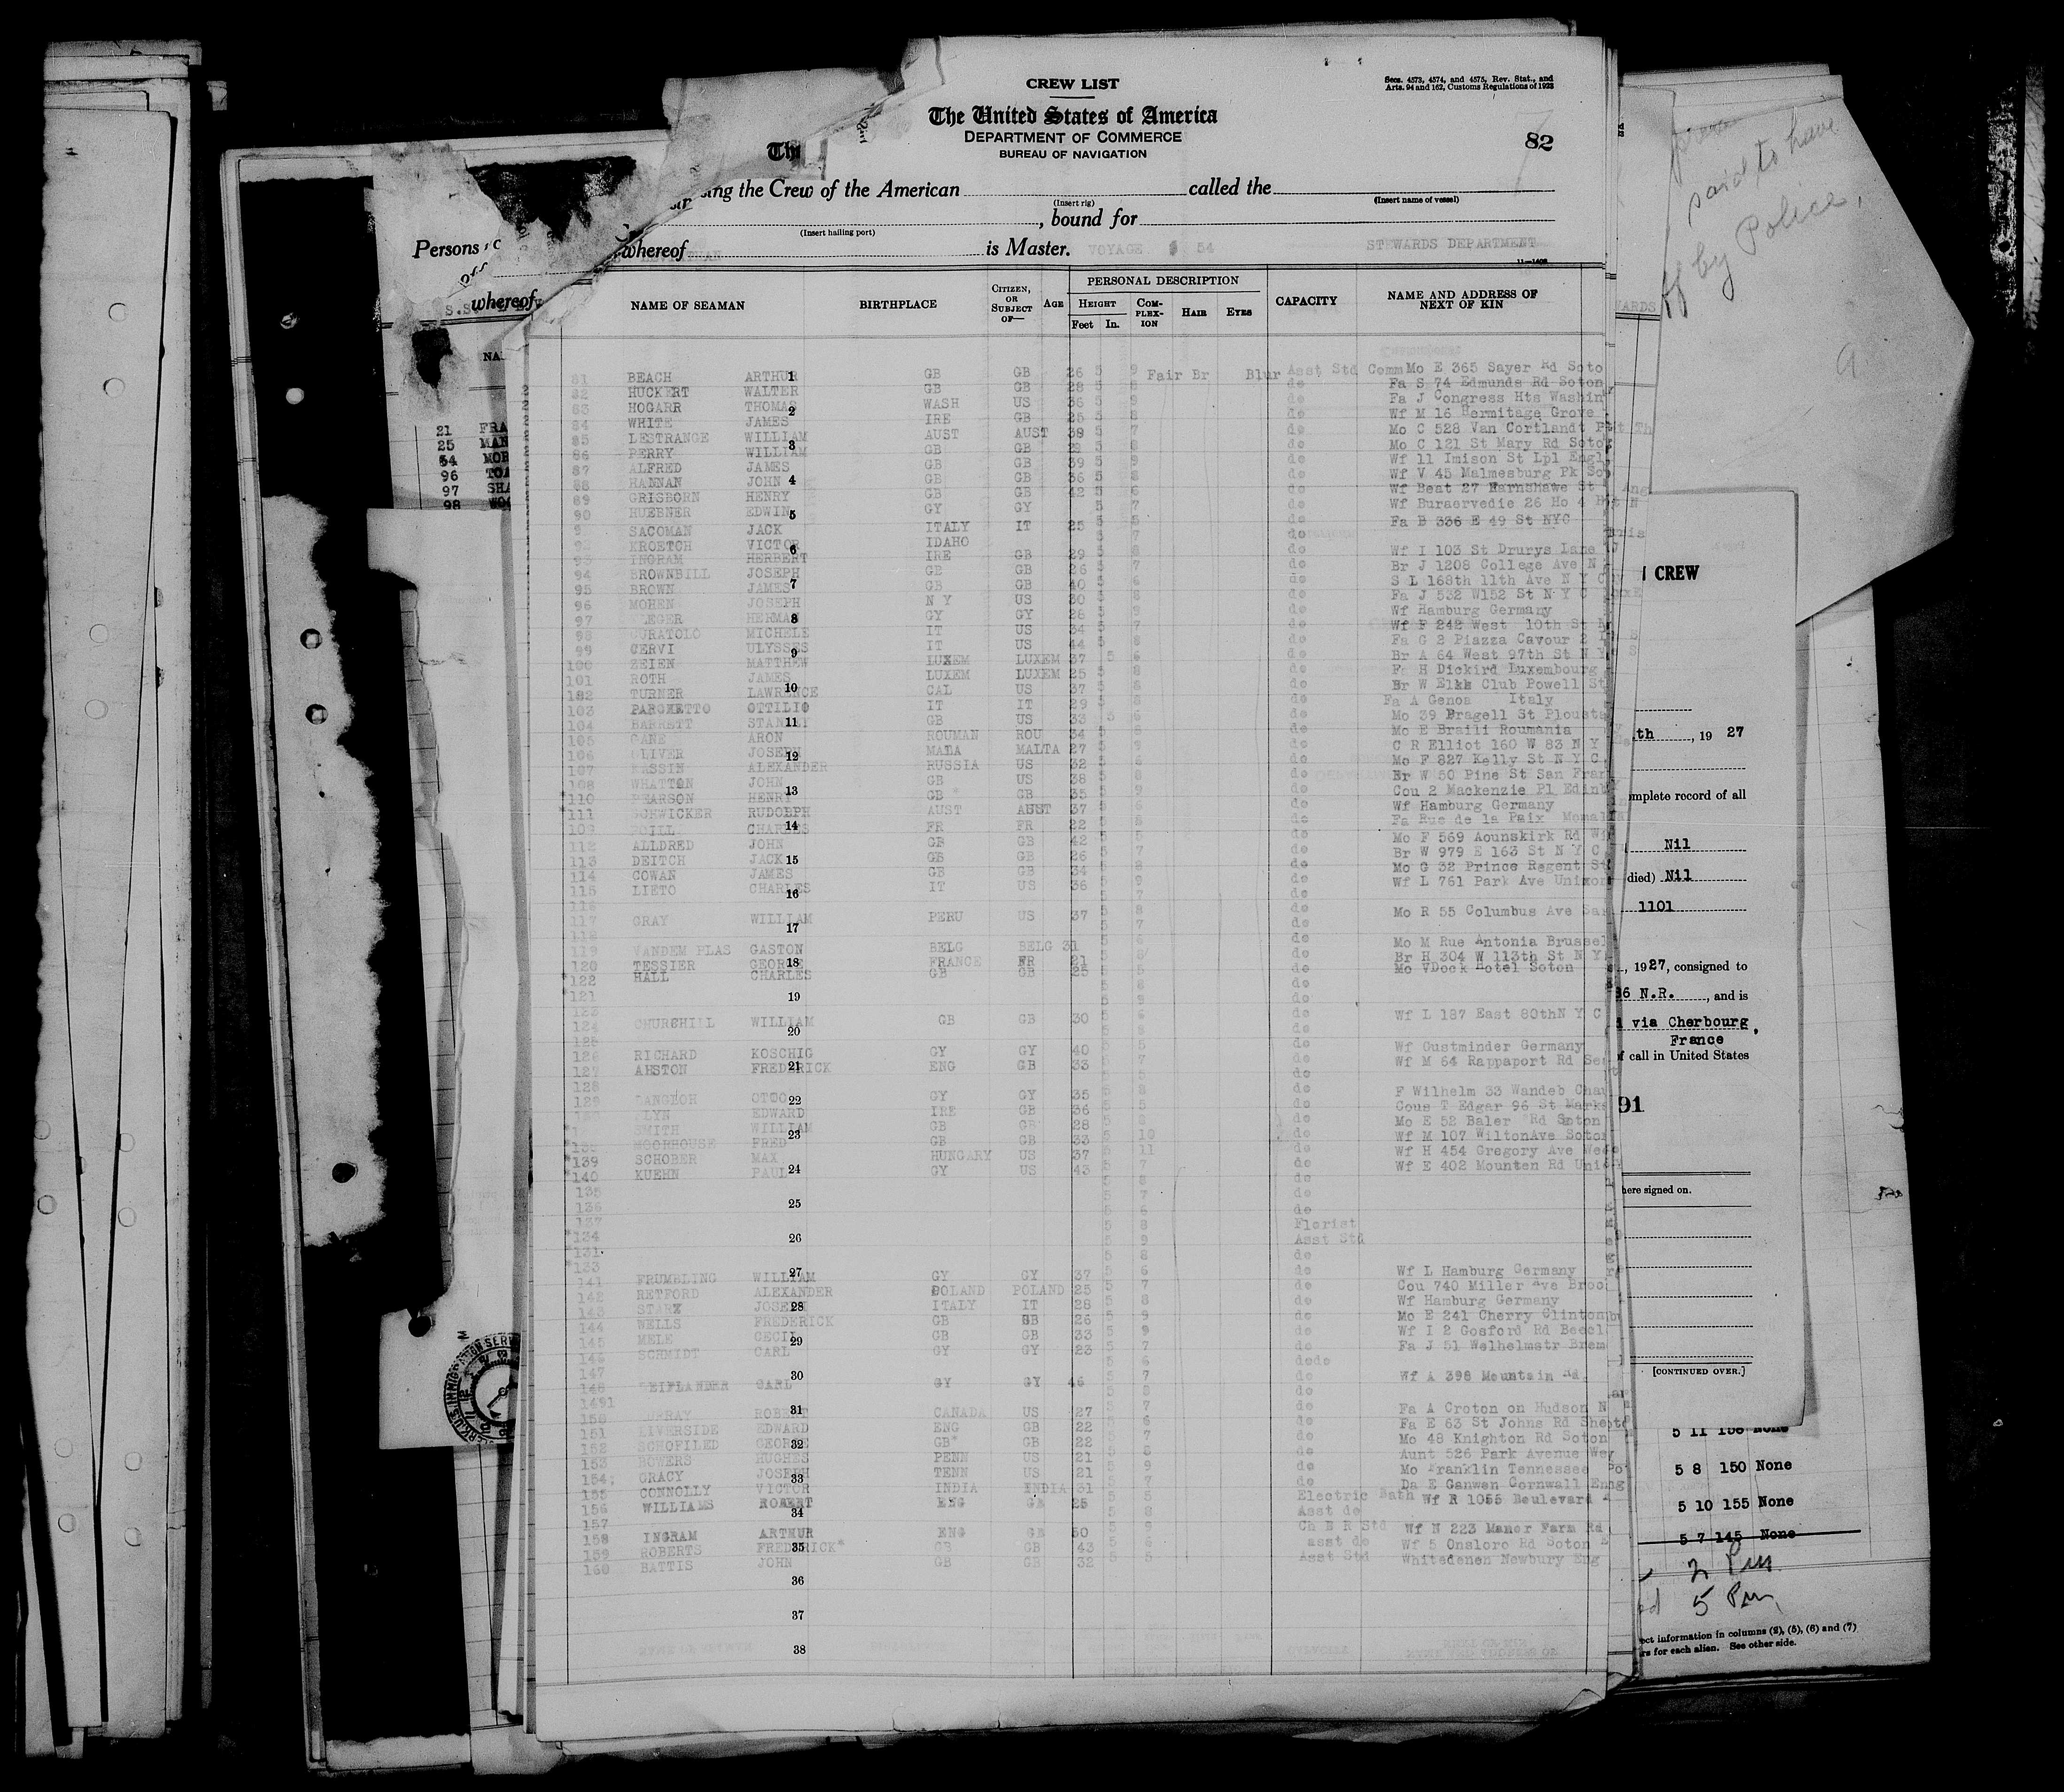 CREW LIST
Secs. 4573, 4574, and 4575, Rev. Stat., and
Arts. 94 and 162, Customs Regulations of 1923
The United States of America
DEPARTMENT OF COMMERCE
BUREAU OF NAVIGATION
82
the Crew of the American called the
(Insert rig) (Insert name of vessel)
, bound for
(Insert hailing port)
Persons
whereof is Master. VOYAGE # 54 STEWARDS DEPARTMENT
whereof
NAME OF SEAMAN BIRTHPLACE CITIZEN, OR SUBJECT OF— AGE PERSONAL DESCRIPTION CAPACITY NAME AND ADDRESS OF NEXT OF KIN
HEIGHT COMPLEXION HAIR EYES
Feet In.
81 BEACH ARTHUR GB GB 26 5 9 Fair Br Blur Asst Std Comm Mo E 365 Sayer Rd Soto
82 HUCKERT WALTER GB GB 28 5 8 do Fa S 74 Edmunds Rd Soton
83 HOGARR THOMAS WASH US 36 5 9 do Fa J Congress Hts Washin
84 WHITE JAMES IRE GB 25 5 8 do Wf M 16 Hermitage Grove
85 LESTRANGE WILLIAM AUST AUST 39 5 7 do Mo C 528 Van Cortlandt P
86 PERRY WILLIAM GB GB 5 8 do Mo C 121 St Mary Rd Soto
87 ALFRED JAMES GB GB 39 5 9 do Wf 11 Imison St Lpl Engl
88 HANNAN JOHN GB GB 36 5 8 do Wf V 45 Malmesburg Pk So
89 GRISBORN HENRY GB GB 42 5 6 do Wf Beat 27 Earnshawe St
90 HUEBNER EDWIN GY GY 5 7 do Wf Buraervedie 26 Ho 4
SACOMAN JACK ITALY IT 25 5 5 do Fa B 336 E 49 St NYC
KROETCH VICTOR IDAHO 5 7
INGRAM HERBERT IRE GB 29 5 8 do Wf I 103 St Drurys Lane
94 BROWNBILL JOSEPH GB GB 26 5 7 do Br J 1208 College Ave N
95 BROWN JAMES GB GB 40 5 6 do S L 168th 11th Ave N Y C
96 MOHEN JOSEPH N Y US 30 5 8 do Fa J 532 W152 St N Y C
97 HERMAN GY GY 28 5 9 do Wf Hamburg Germany
98 CURATOLO MICHELE IT US 34 5 7 do Wf F 242 West 10th St N
99 CERVI ULYSSES IT US 44 5 8 do Fa G 2 Piazza Cavour 2
100 ZEIEN MATTHEW LUXEM LUXEM 37 5 6 do Br A 64 West 97th St N Y
101 ROTH JAMES LUXEM LUXEM 25 5 8 do Fa H Dickird Luxembourg
102 TURNER LAWRENCE CAL US 37 5 8 do Br W Elks Club Powell St
103 PARGKETTO OTTILIO IT IT 29 5 8 do Fa A Genoa Italy
104 BARRETT STANLEY GB US 33 5 6 do Mo 39 Bragell St Plousta
105 CANE ARON ROUMAN ROU 34 5 8 do Mo E Braili Roumania
106 OLIVER JOSEPH MADA MALTA 27 5 9 do C R Elliot 160 W 83 N Y
107 ALEXANDER RUSSIA US 32 5 6 do Mo F 827 Kelly St N Y C
108 WHATTON JOHN GB US 38 5 8 do Br W 50 Pine St San Fran
110 PEARSON HENRY GB GB 35 5 9 do Cou 2 Mackenzie Pl Edinb
111 SCHWICKER RUDOLPH AUST AUST 37 5 6 do Wf Hamburg Germany
109 CHARLES FR FR 22 5 8 do Fa Rue de la Paix
112 ALLDRED JOHN GB GB 42 5 5 do Mo F 569 Aounskirk Rd
113 DEITCH JACK GB GB 26 5 7 do Br W 979 E 163 St N Y C
114 COWAN JAMES GB GB 34 5 8 do Mo G 32 Prince Regent St
115 LIETO CHARLES IT US 36 5 9 do Wf L 761 Park Ave Union
116
117 GRAY WILLIAM PERU US 37 5 8 do Mo R 55 Columbus Ave
118
119 VANDEM PLAS GASTON BELG BELG 31 5 6 do Mo M Rue Antonia Brussel
120 TESSIER GEORGE FRANCE FR 21 5 8 do Br H 304 W 113th St N Y
122 HALL CHARLES GB GB 25 5 5 do Mo VDock Hotel Soton
121
123
124 CHURCHILL WILLIAM GB GB 30 5 6 do Wf L 187 East 80thN Y C
125
126 RICHARD KOSCHIG GY GY 40 5 5 do Wf Gustminder Germany
127 AHSTON FREDERICK ENG GB 33 5 7 do Wf M 64 Rappaport Rd
128
129 OTTO GY GY 35 5 8 do F Wilhelm 33 Wandeb Chau
EDWARD IRE GB 36 5 5 do Cous T Edgar 96 St Marks
SMITH WILLIAM GB GB 28 5 8 do Mo E 52 Baler Rd Soton
MOORHOUSE FRED GB GB 33 5 10 do Wf M 107 WiltonAve Soton
*139 SCHOBER MAX HUNGARY US 37 5 11 do Wf H 454 Gregory Ave
*140 KUEHN PAUL GY US 43 5 7 do Wf E 402 Mounten Rd Uni
135 5 8 do
136 5 7 do
137 5 6 do
*134 5 8 Florist
*131 5 9 Asst Std
*133 5 8 do
141 FRUMBLING WILLIAM GY GY 37 5 6 do Wf L Hamburg Germany
142 RETFORD ALEXANDER POLAND POLAND 25 5 7 do Cou 740 Miller Ave Broo
143 STARX JOSEPH ITALY IT 28 5 8 do Wf Hamburg Germany
144 WELLS FREDERICK GB GB 26 5 9 do Mo E 241 Cherry Clinton
145 MELE CECIL GB GB 33 5 9 do Wf I 2 Gosford Rd Beccl
146 SCHMIDT CARL GY GY 23 5 7 do Fa J 51 Welhelmstr Brem
147 5 6 dodo
148 CARL GY GY 46 5 7 do Wf A 398 Mountain Rd
1491 5 8 do
150 MURRAY ROBERT CANADA US 27 5 7 do Fa A Croton on Hudson N
151 LIVERSIDE EDWARD ENG GB 22 5 6 do Fa E 63 St Johns Rd
152 SCHOFILED GEORGE GB GB 22 5 7 do Mo 48 Knighton Rd Soton
153 BOWERS HUGHES PENN US 21 5 8 do Aunt 526 Park Avenue
154 GRACY JOSEPH TENN US 21 5 9 do Mo Franklin Tennessee
155 CONNOLLY VICTOR INDIA INDIA 31 5 7 do Da E Ganwen Cornwall Eng
156 WILLIAMS ROBERT ENG GB 25 5 5 Electric Bath Wf R 1055 Boulevard
157 5 8 Asst do
158 INGRAM ARTHUR ENG GB 50 5 9 Ch B R Std Wf N 223 Manor Farm Rd
159 ROBERTS FREDERICK* GB GB 43 5 6 asst do Wf 5 Onsloro Rd Soton E
160 BATTIS JOHN GB GB 32 5 5 Asst Std Whitedenen Newbury Eng
1
2
3
4
5
6
7
8
9
10
11
12
13
14
15
16
17
18
19
20
21
22
23
24
25
26
27
28
29
30
31
32
33
34
35
36
37
38
21 FRA
25 MAN
54 MOR
96 TOA
97 SHA
98 WOO
said to have
by Police,
CREW
th, 19 27
omplete record of all
Nil
died) Nil
1101
, 1927, consigned to
86 N.R., and is
via Cherbourg,
France
of call in United States
91
here signed on.
[CONTINUED OVER.]
5 11 None
5 8 150 None
5 10 155 None
5 7 145 None
2 Pm
5 Pm
ect information in columns (2), (5), (6) and (7)
rs for each alien. See other side.